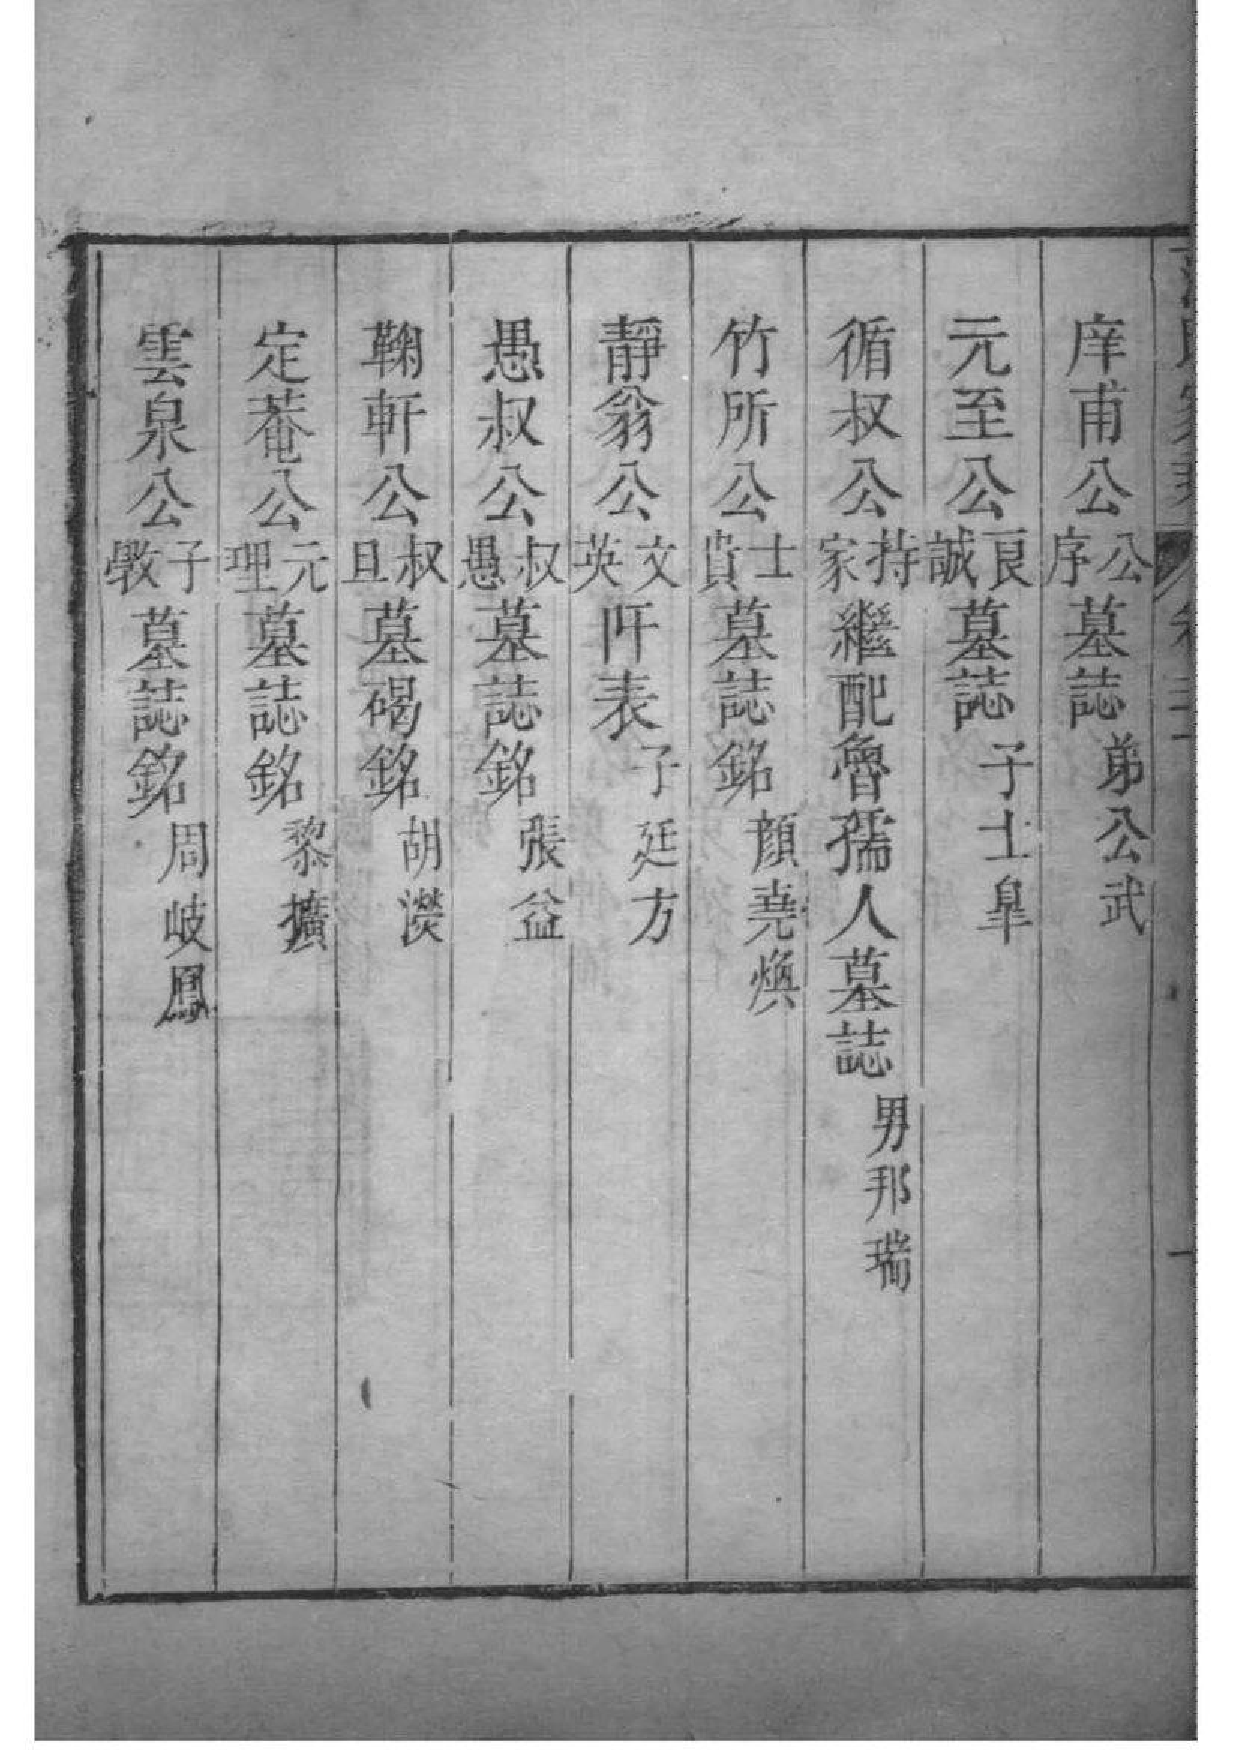 庠甫公公序墓誌弟公武
元至公良誠墓誌子士皐
循叔公持家繼配魯孺人墓誌男邦瑞
竹所公士貴墓誌銘顏堯煥
靜翁公文英阡表子廷方
愚叔公叔愚墓誌銘張益
鞠軒公叔旦墓碣銘胡濙
定菴公元理墓誌銘黎擴
雲泉公子斆墓誌銘周岐鳳